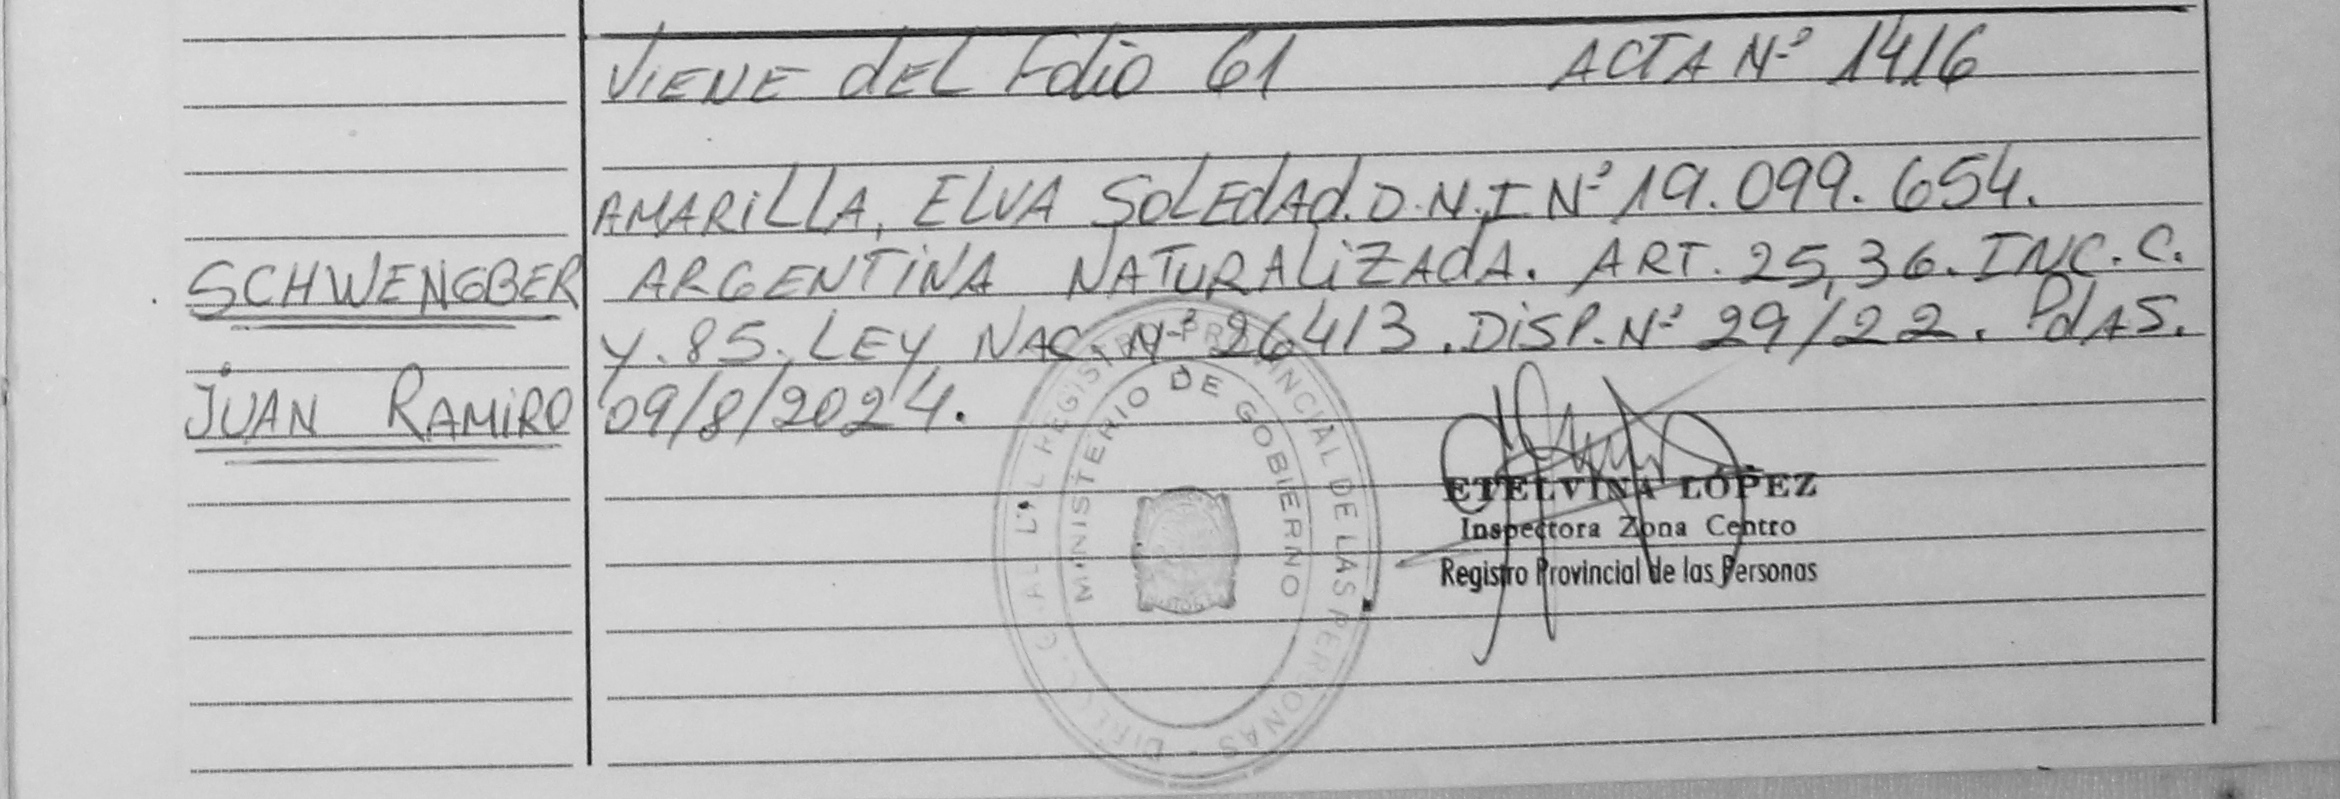 VIENE dEL Folio 61 ACTA Nº 1416
AMARILLA, ELVA SOLEDAD. D.N.I Nº 19.099.654.
ARGENTINA NATURALIZADA. ART. 25,36. INC. C.
Y. 85. LEY NAC. Nº 26413. DISP. Nº 29/22. PdAS.
09/8/2024.
SCHWENGBER
JUAN RAMIRO
MINISTERIO DE GOBIERNO
REGISTRO PROVINCIAL DE LAS PERSONAS
ETELVINA LÓPEZ
Inspectora Zona Centro
Registro Provincial de las Personas